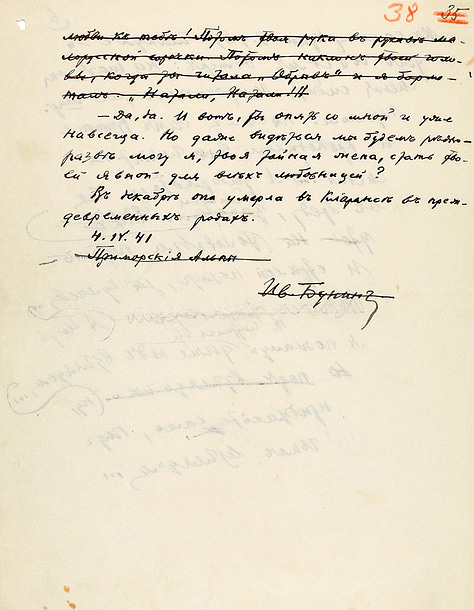 38 35
любви къ тебѣ! Потомъ твоя рука въ рукавѣ ма-
лорусской сорочки. Потомъ наклонъ твоей голо-
вы, когда ты читала „Обрывъ“ и я бормо-
талъ: „Натали, Натали!!!
— Да, да. И вотъ, ты опять со мной и уже
навсегда. Но даже видѣться мы будемъ рѣдко —
развѣ могу я, твоя тайная жена, стать тво-
ей явной для всѣхъ любовницей?
Въ декабрѣ она умерла въ Кларансѣ въ преж-
девременныхъ родахъ.
4. IV. 41
Приморскія Альпы
Ив. Бунинъ